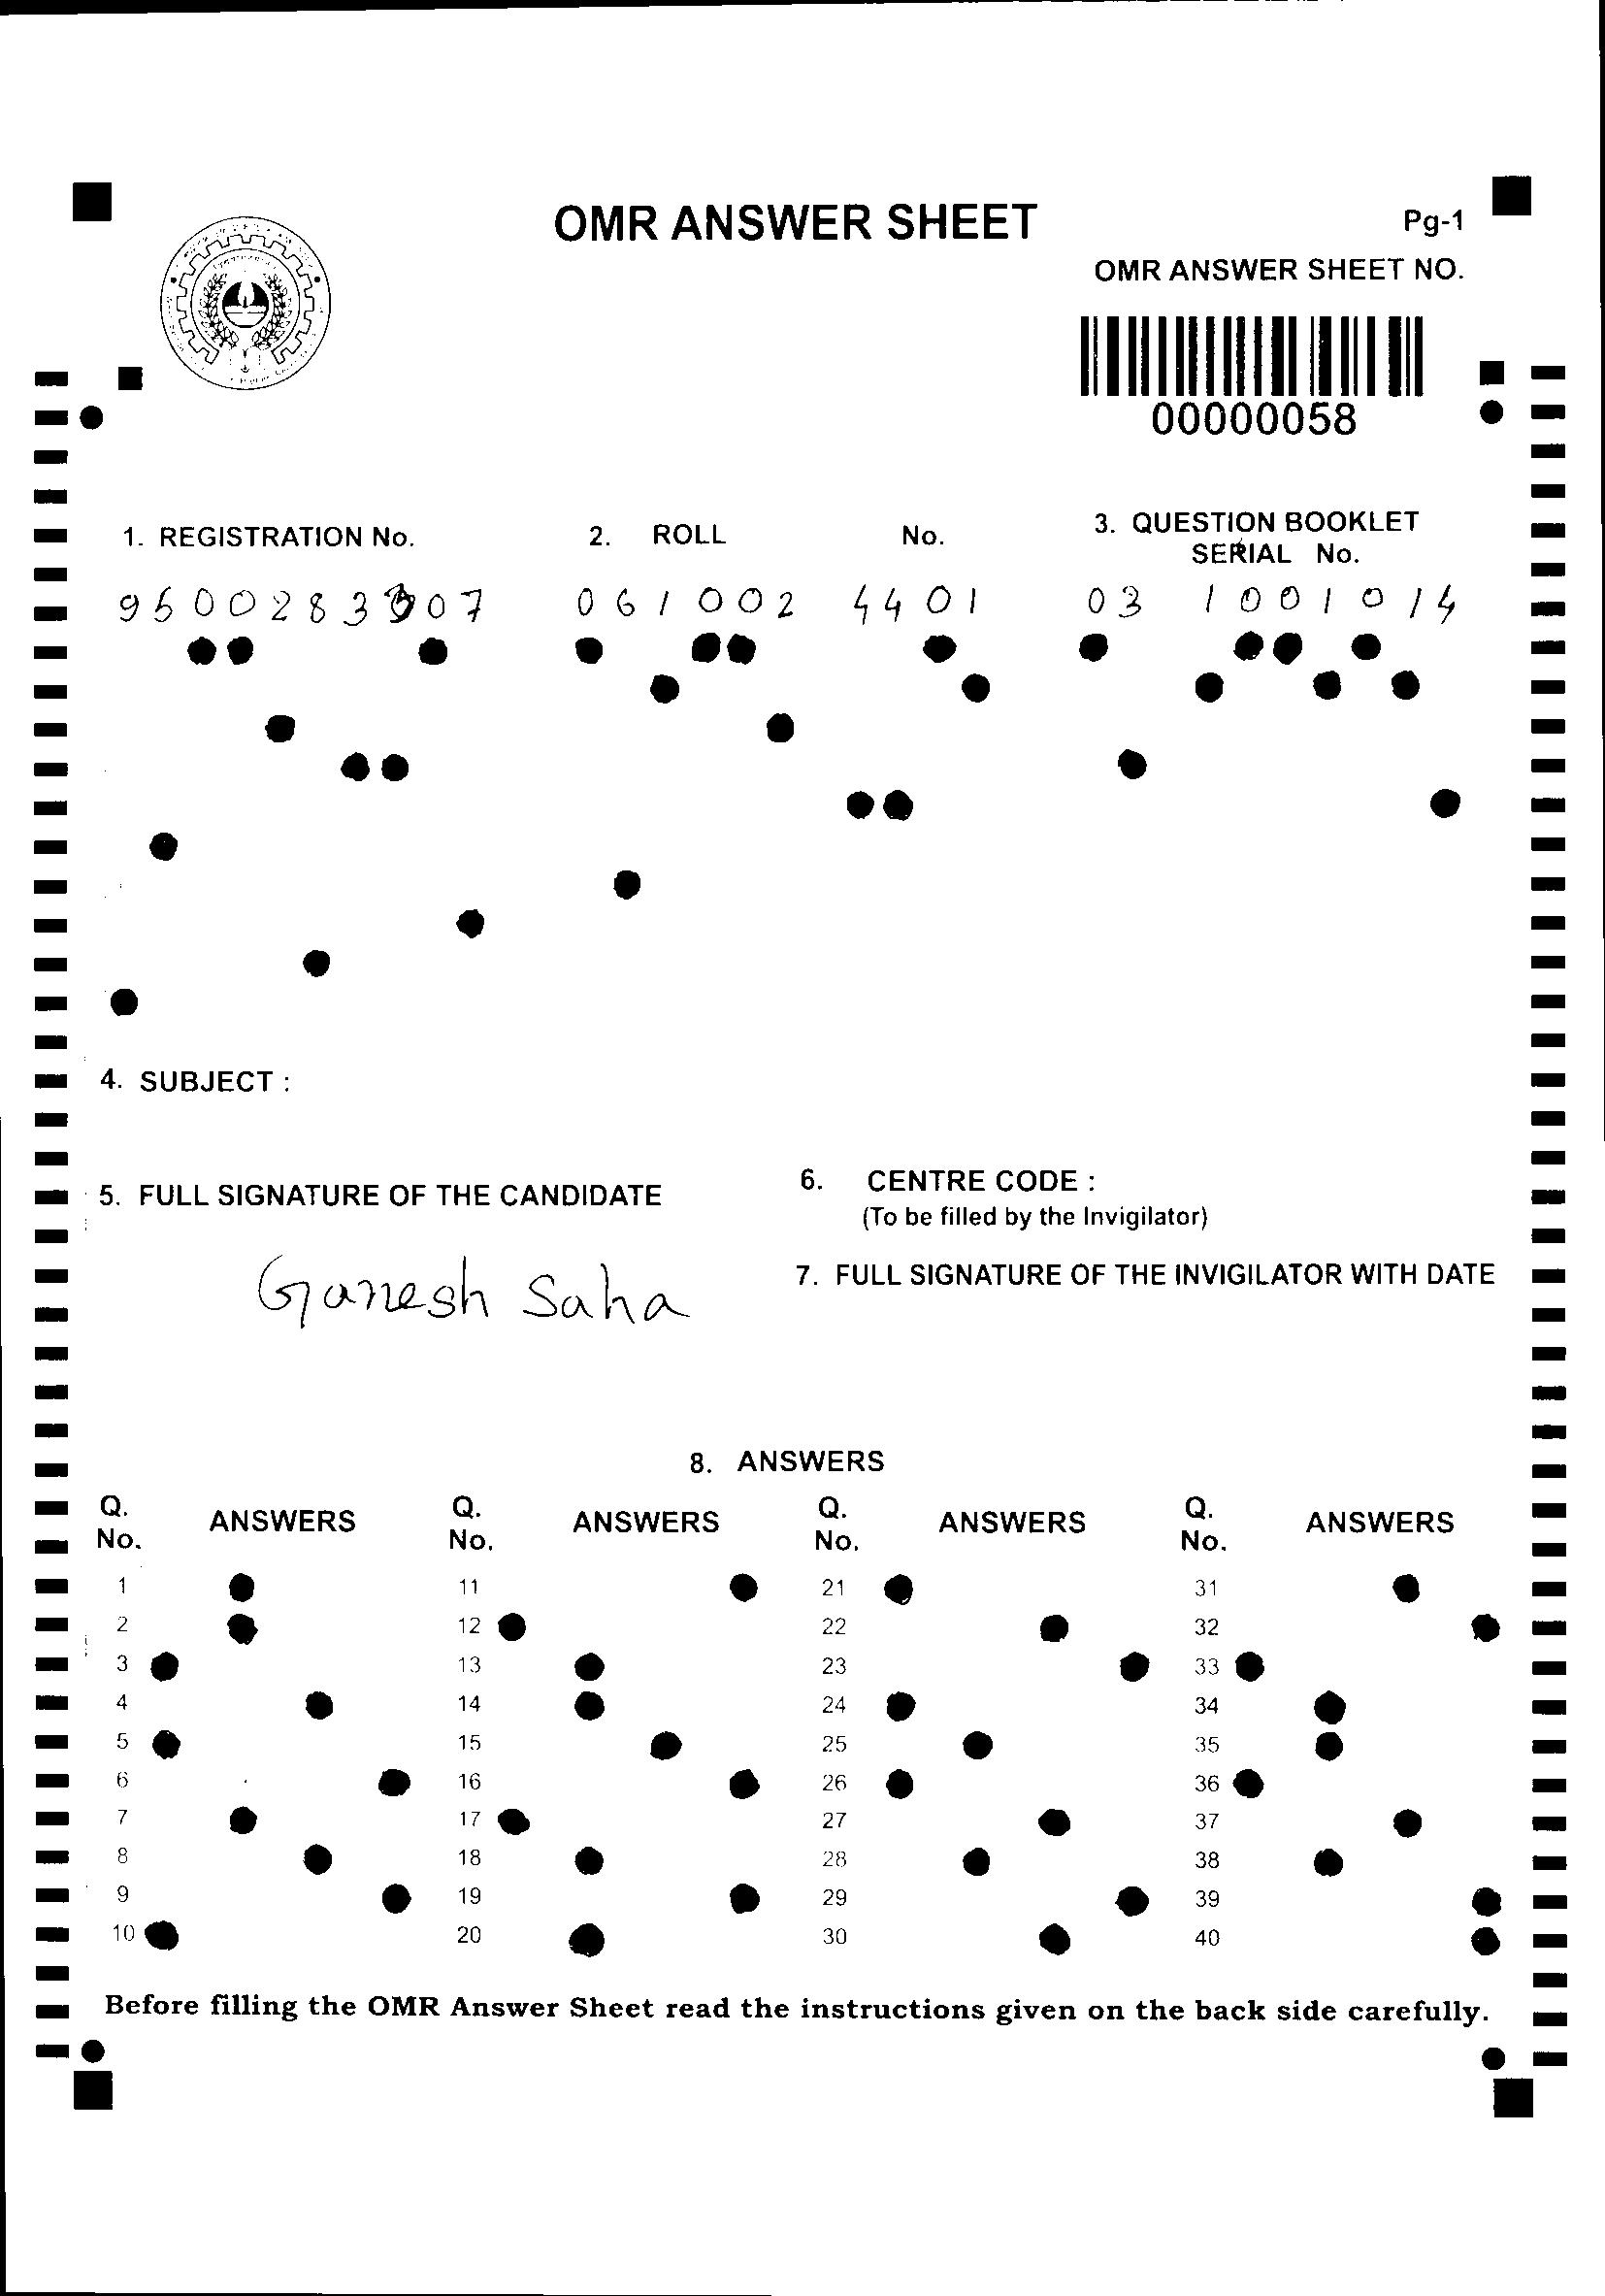 OMR ANSWER SHEET
Pg-1
OMR ANSWER SHEET NO.
00000058
1. REGISTRATION No.
2. ROLL No.
3. QUESTION BOOKLET
SERIAL No.
9500283307
061002 4401
03 1001014
4. SUBJECT :
5. FULL SIGNATURE OF THE CANDIDATE
Ganesh Saha
6. CENTRE CODE :
(To be filled by the Invigilator)
7. FULL SIGNATURE OF THE INVIGILATOR WITH DATE
8. ANSWERS
Q. No. ANSWERS Q. No. ANSWERS Q. No. ANSWERS Q. No. ANSWERS
1 11 21 31
2 12 22 32
3 13 23 33
4 14 24 34
5 15 25 35
6 16 26 36
7 17 27 37
8 18 28 38
9 19 29 39
10 20 30 40
Before filling the OMR Answer Sheet read the instructions given on the back side carefully.